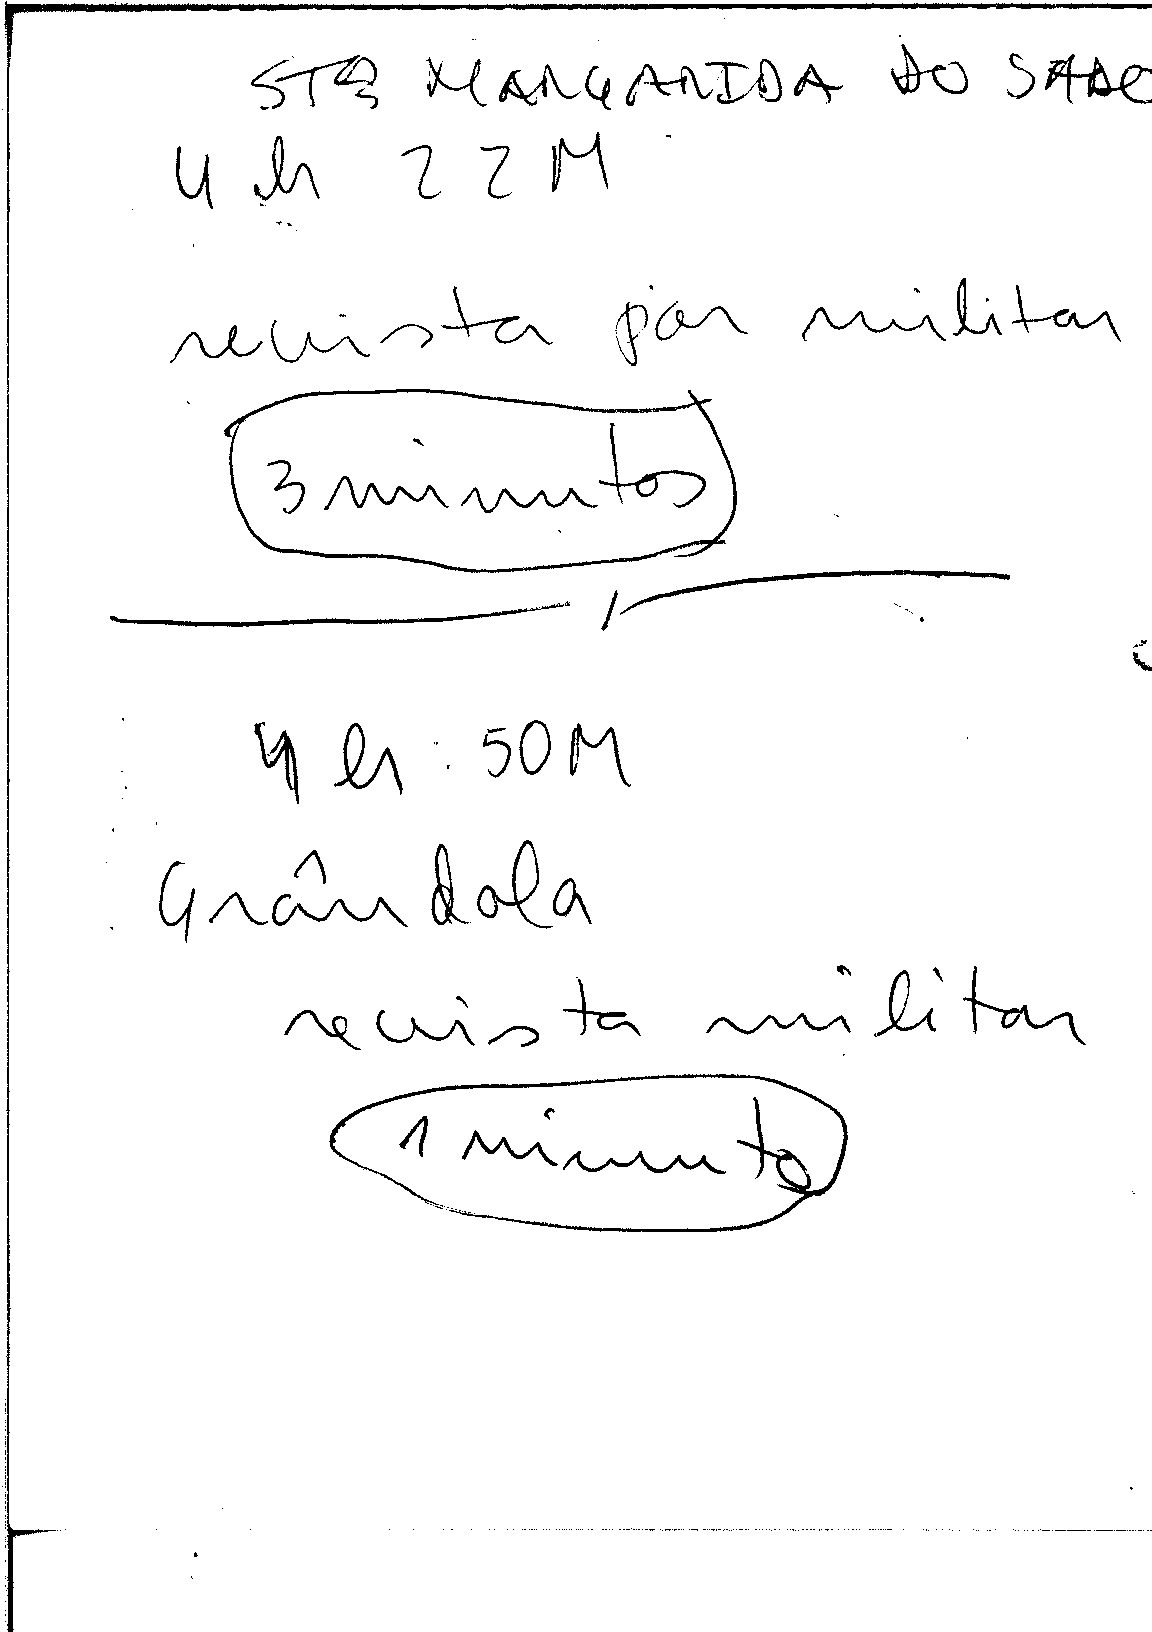 STª MARGARIDA DO SADO
4 h 22 M
revista por militar
3 minutos
4 h : 50 M
Grândola
revista militar
1 minuto